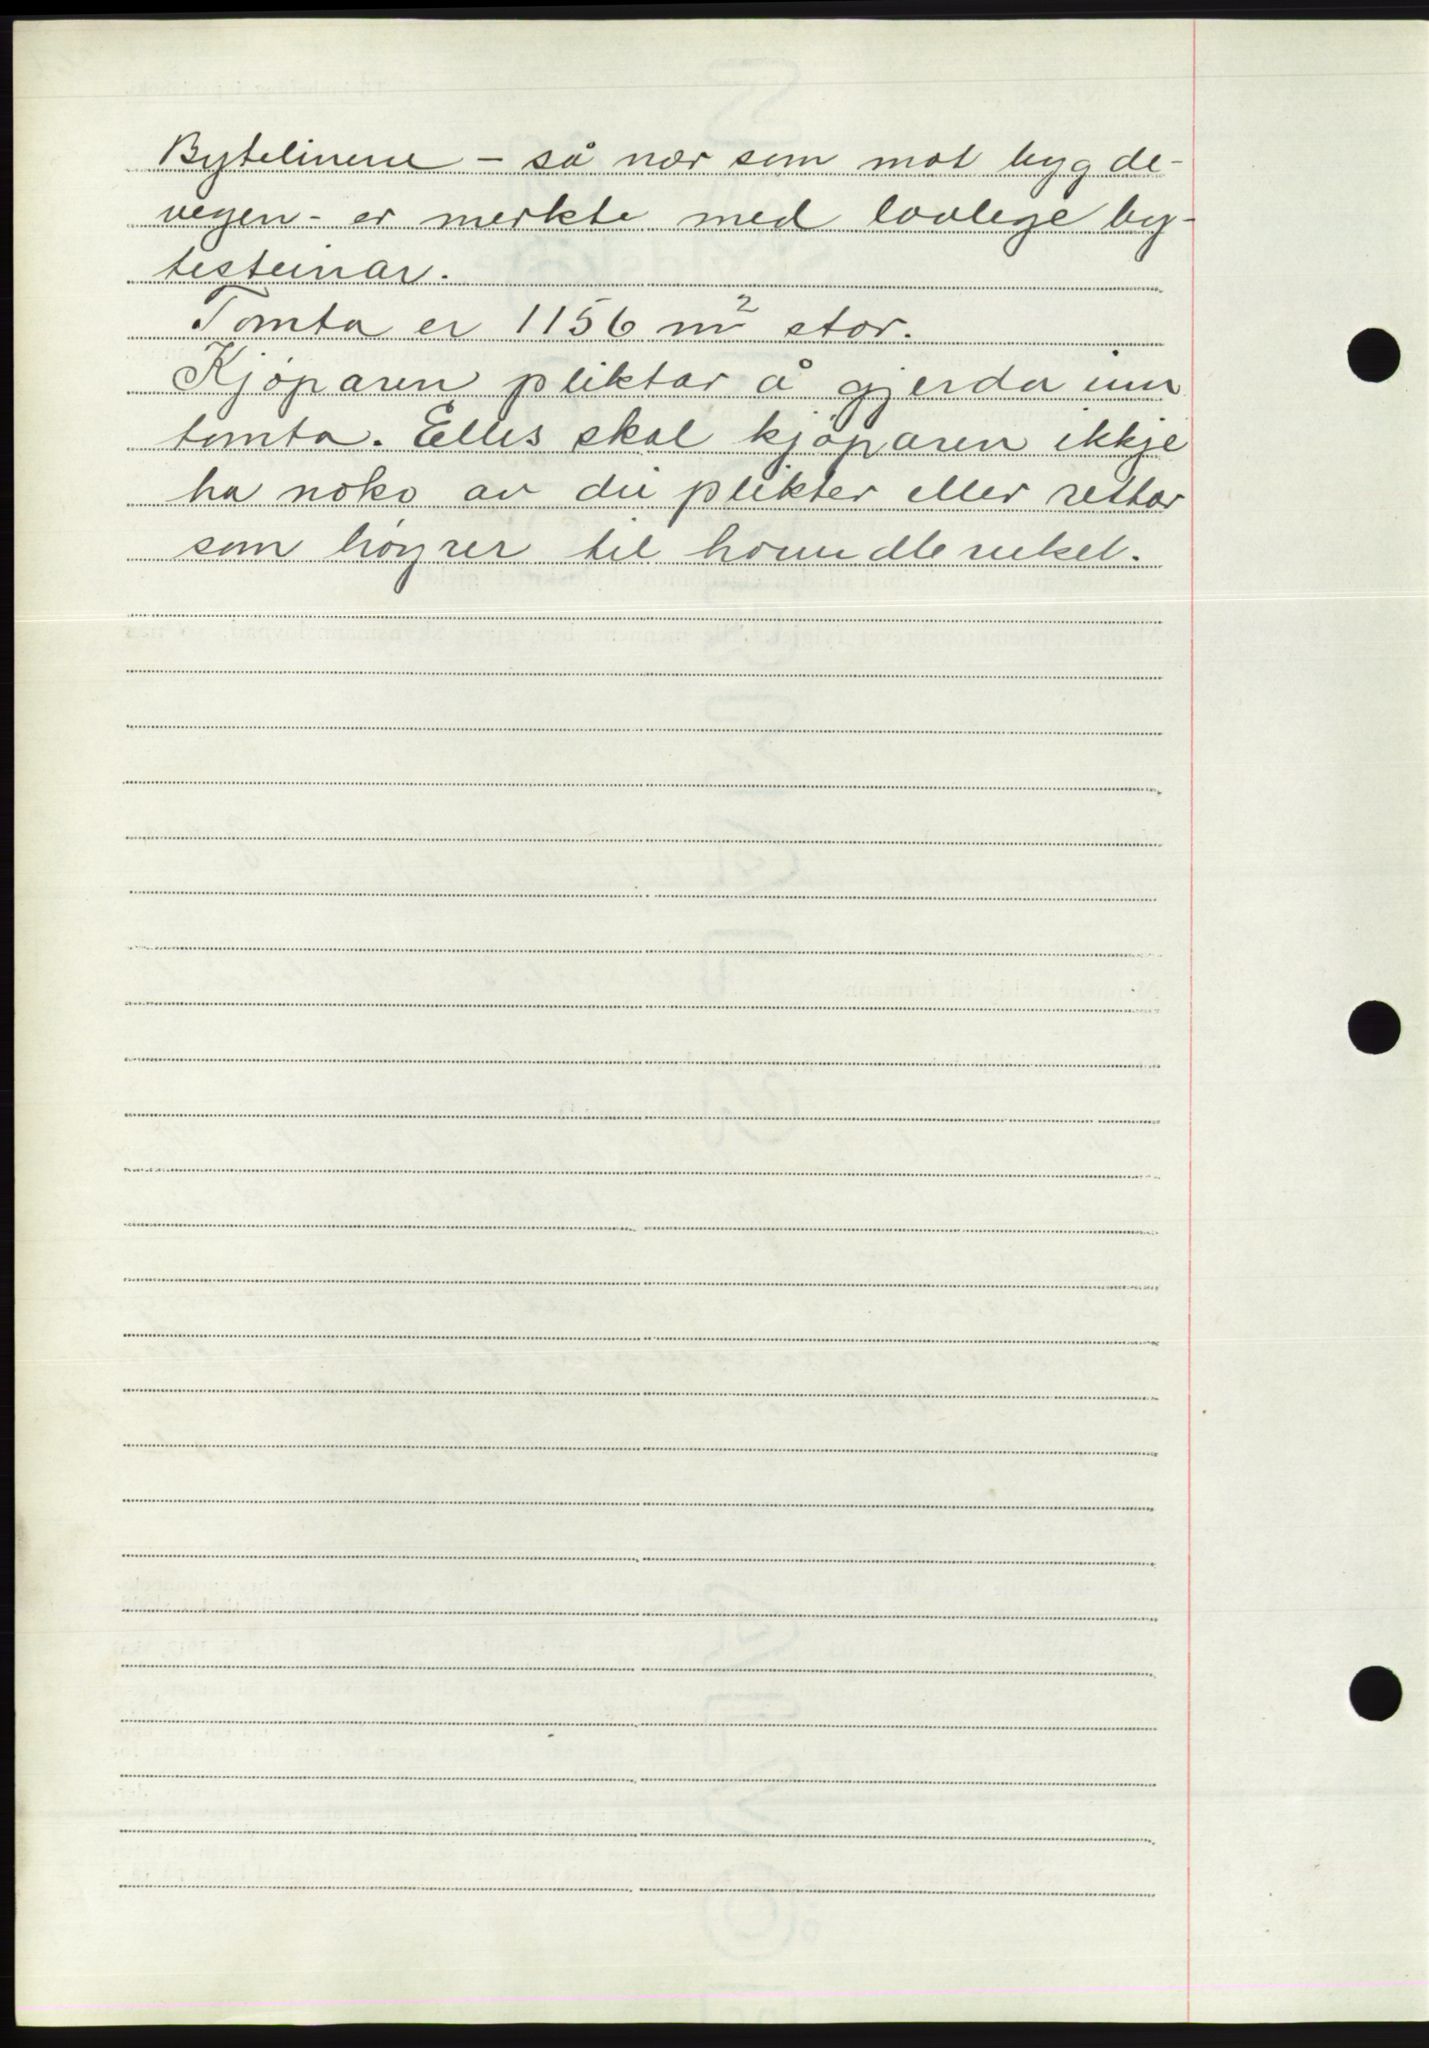 Bytelinene – så nær som mot bygde-
vegen – er merkte med lovlege by-
testeinar.
Tomta er 1156 m² stor.
Kjøparen pliktar å gjerda inn
tomta. Elles skal kjøparen ikkje
ha noko av dei plikter eller rettar
som höyrer til hovudbruket.